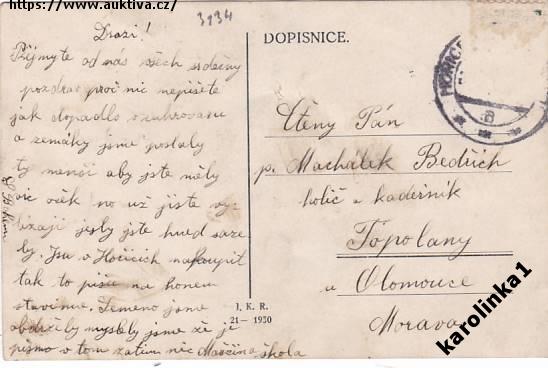 https://www.auktiva.cz/
3134
Drazí!
Přijmyte od nás všech srdečný
pozdrav proč nic nepíšete
jak dopadlo
a zemáky jsme poslaly
ty menší aby jste měly
víc oček no už jiste vy-
lízají jesly jste hned saze
ly. Jsu v Hořicích nakoupit
tak to píšu na honem
stavinue. Semeno jsme
obdrželi myslely jsme že je
písmo v tom zatím nic Maččina škola
DOPISNICE.
I. K. R.
21- 1930
HOŘICE
Ctěný Pán
p. Machálek Bedřich
holič a kadeřník
Topolany
u Olomouce
Morava
karolinka1